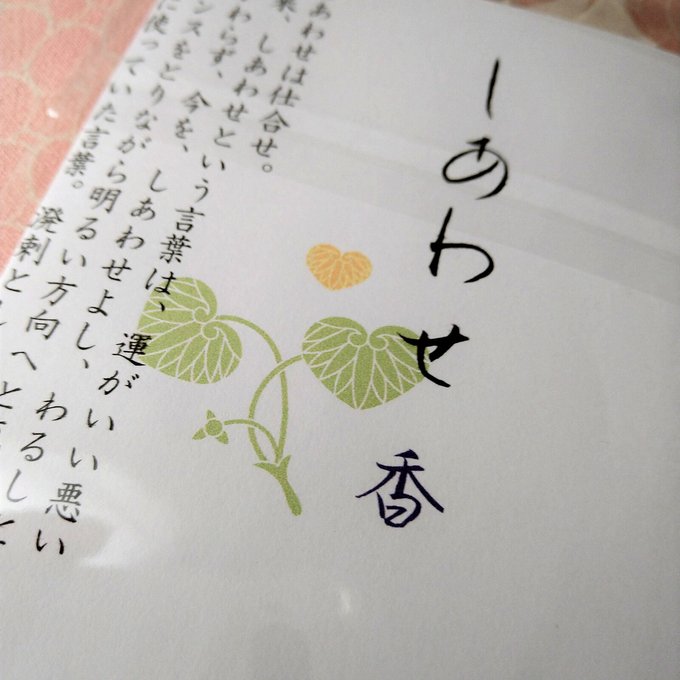 しあわせ 香
あわせは仕合せ。
来、しあわせという言葉は、運がいい悪い
わらず、今を、しあわせよし、わるしと
ンスをとりながら明るい方向へと
に使っていた言葉。 溌剌とし